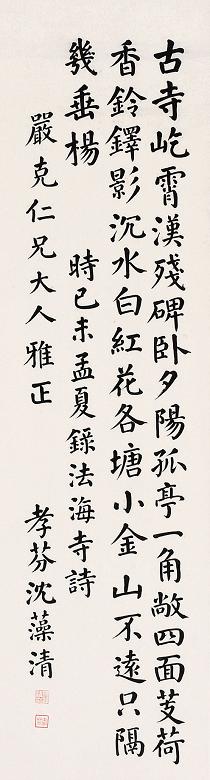 古寺屹霄漢殘碑卧夕陽孤亭一角敞四面芰荷
香鈴鐸影沉水白紅花各塘小金山不遠只隔
幾垂楊
時己未孟夏錄法海寺詩
嚴克仁兄大人雅正
孝芬沈藻清